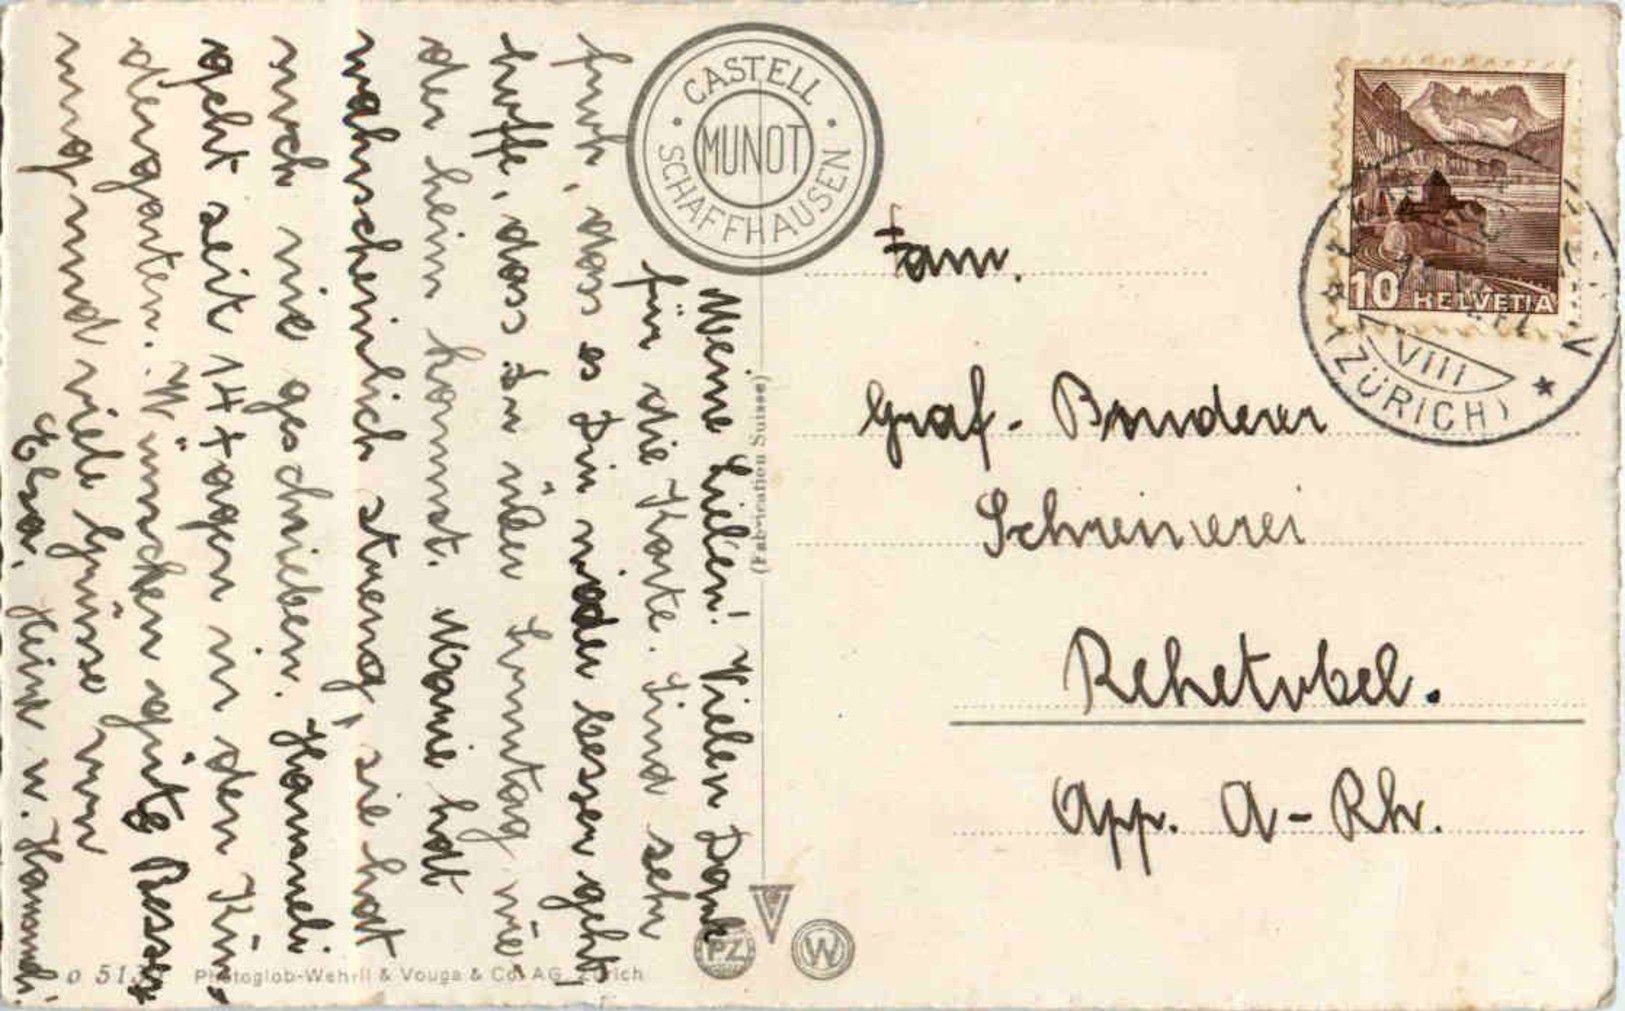 Meine Lieben! Vielen Dank
für die Karte. Sind sehr
froh, dass es Din wieder besser geht,
hoffe, dass In über Sonntag wie-
der heim kommst. Marie hat
wahrscheinlich streng, sie hat
noch nie geschrieben. Hannneli
geht seit 14 Tagen in den Kin-
dergarten. Wünschen gute Besse-
rung und viele Grüsse von
Elsa, Heinr u. Hannneli.
CASTELL
MUNOT
SCHAFFHAUSEN
(Fabrication Suisse)
o 51
Photoglob-Wehrli & Vouga & Co. AG. Zürich
PZ
W
10 HELVETIA
VIII
(ZÜRICH)
Fam.
Graf-Bruderer
Schreinerei
Rehetobel.
App. A-Rh.